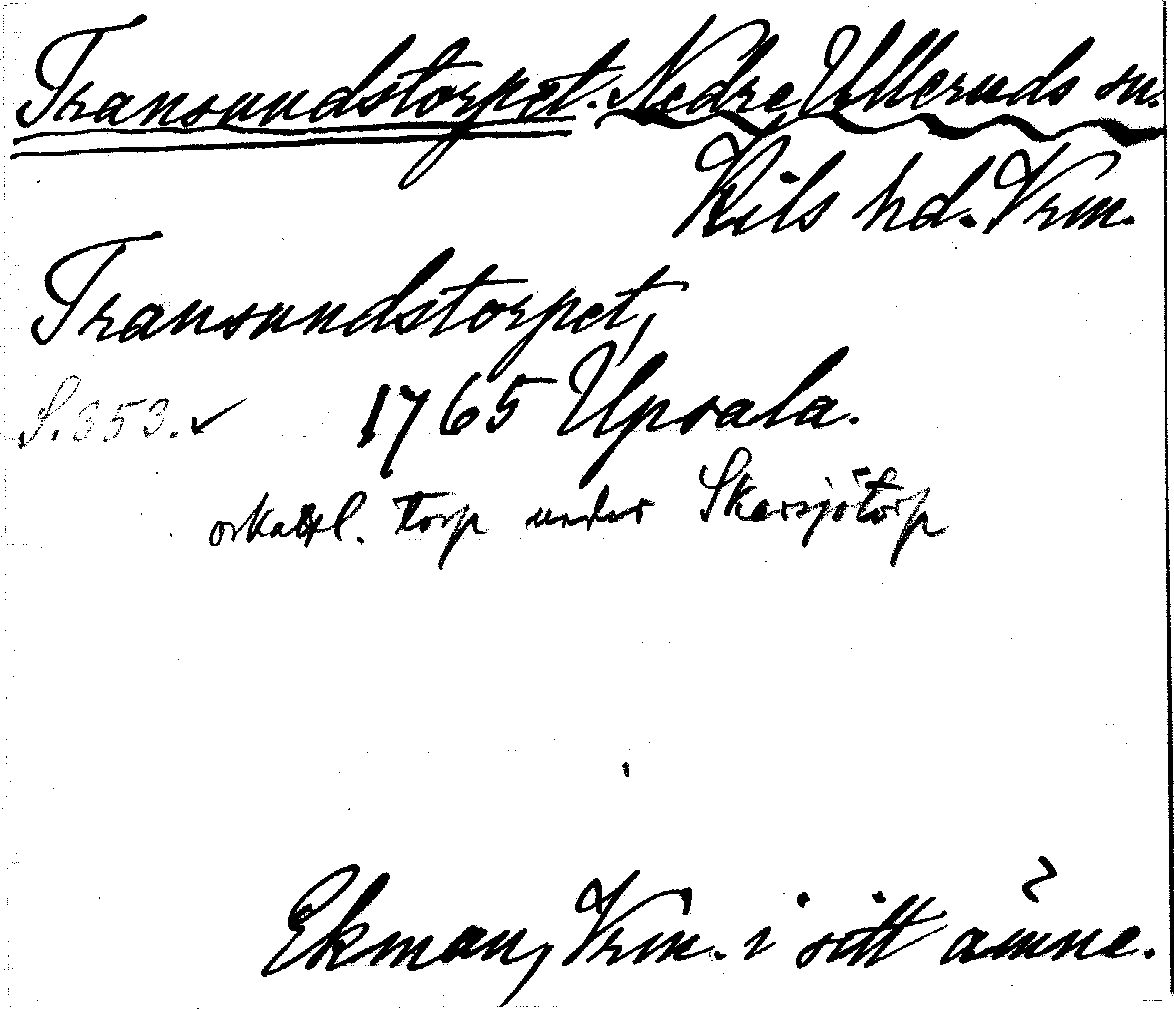 Transundstorpet. Nedre Ulleruds sn.
Kils hd. Vrm.
Transundstorpet,
S. 353. ✓ 1765 Upsala.
oskattl. torp under Skersjötorp
Ekman, Vrm. i sitt ämne.